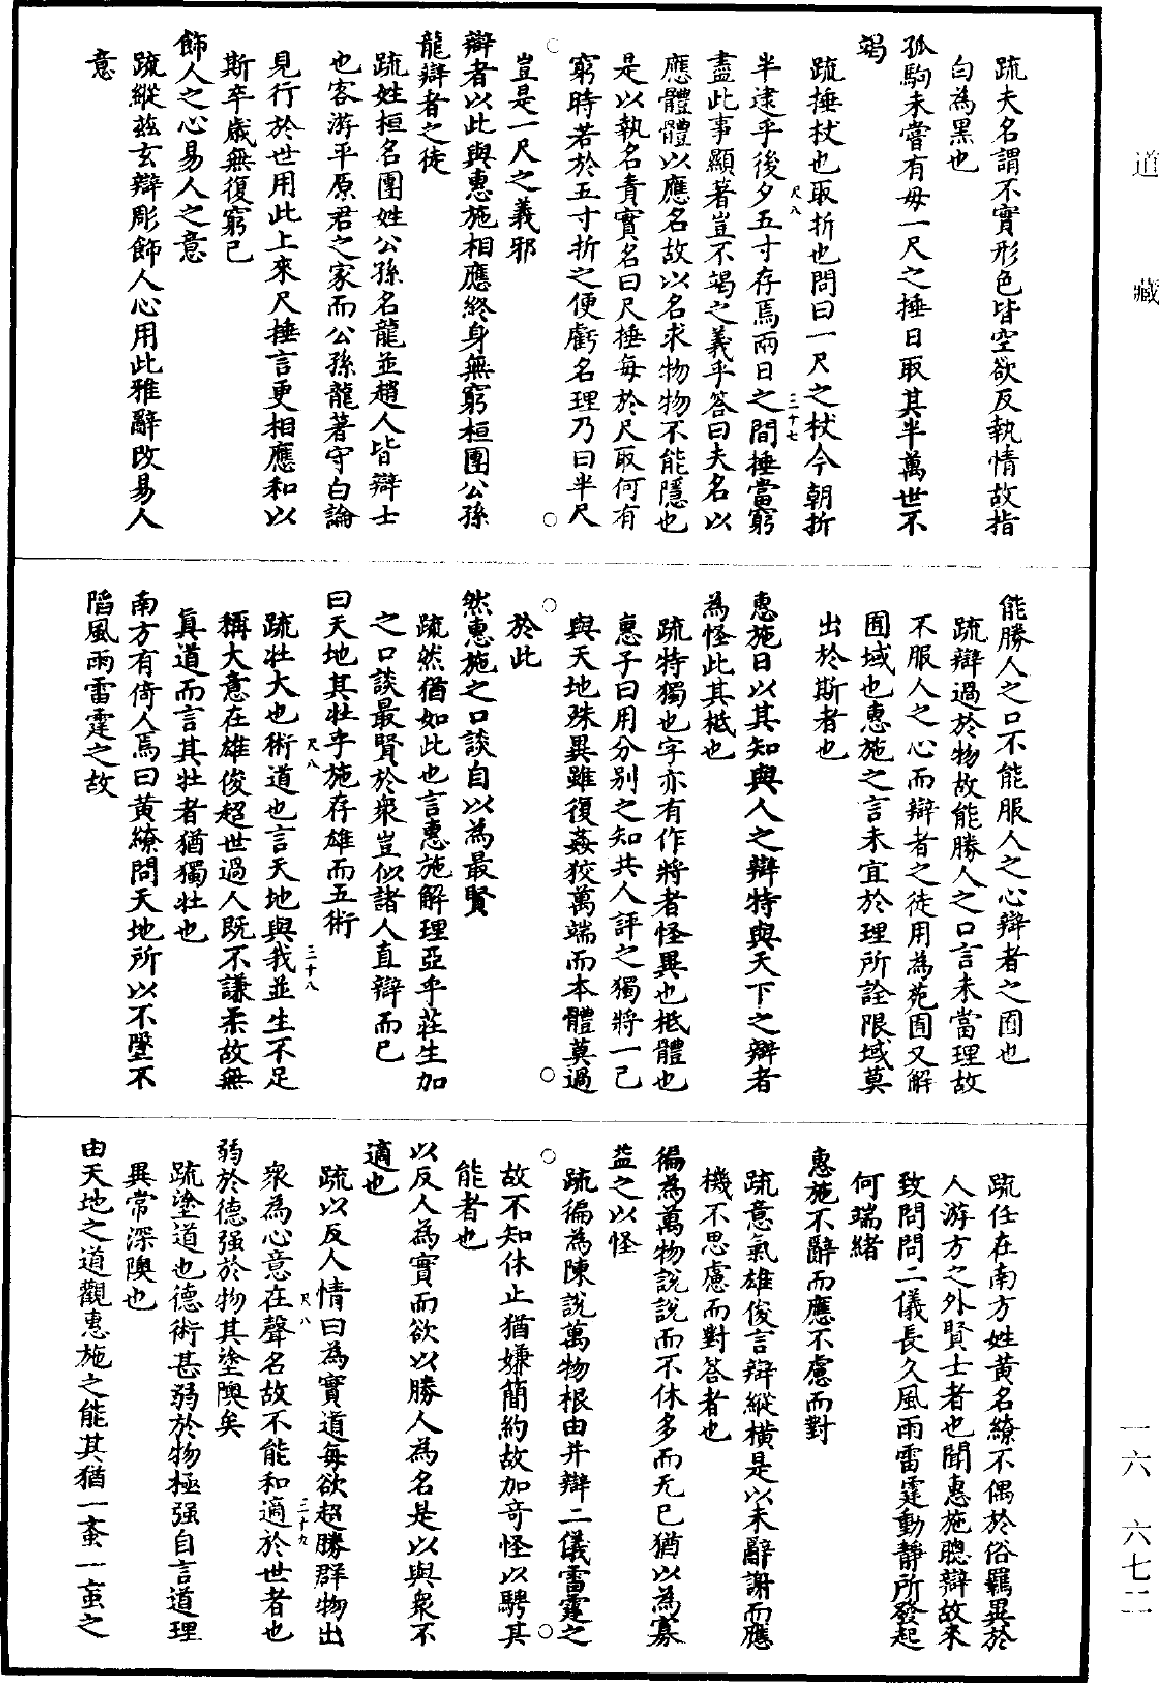 道藏
疏夫名謂不實形色皆空欲反執情故指
白為黑也
孤駒未嘗有母一尺之捶日取其半萬世不
竭
疏捶杖也取折也問曰一尺之杖今朝折
尺八
三十七
半逮乎後夕五寸存焉兩日之間捶當窮
盡此事顯著豈不竭之義乎答曰夫名以
應體體以應名故以名求物物不能隱也
是以執名責實名曰尺捶每於尺取何有
窮時若於五寸折之便虧名理乃曰半尺
豈是一尺之義邪
辯者以此與惠施相應終身無窮桓團公孫
龍辯者之徒
疏姓桓名團姓公孫名龍並趙人皆辯士
也客游平原君之家而公孫龍著守白論
見行於世用此上來尺捶言更相應和以
斯卒歲無復窮已
飾人之心易人之意
疏縱茲玄辯彫飾人心用此雅辭改易人
意
能勝人之口不能服人之心辯者之囿也
疏辯過於物故能勝人之口言未當理故
不服人之心而辯者之徒用為苑囿又解
囿域也惠施之言未宜於理所詮限域莫
出於斯者也
惠施日以其知與人之辯特與天下之辯者
為怪此其柢也
疏特獨也字亦有作將者怪異也柢體也
惠子曰用分別之知共人評之獨將一己
與天地殊異雖復姦狡萬端而本體莫過
於此
然惠施之口談自以為最賢
疏然猶如此也言惠施解理亞乎莊生加
之口談最賢於衆豈似諸人直辯而已
曰天地其壯乎施存雄而五術
疏壯大也術道也言天地與我並生不足
尺八
三十八
稱大意在雄俊超世過人既不謙柔故無
真道而言其壯者猶獨壯也
南方有倚人焉曰黃繚問天地所以不墜不
陷風雨雷霆之故
疏住在南方姓黃名繚不偶於俗羈異於
人游方之外賢士者也聞惠施聰辯故來
致問問二儀長久風雨雷霆動靜所發起
何端緒
惠施不辭而應不慮而對
疏意氣雄俊言辯縱橫是以未辭謝而應
機不思慮而對答者也
徧為萬物說說而不休多而无已猶以為寡
益之以怪
疏徧為陳說萬物根由并辯二儀雷霆之
故不知休止猶嫌簡約故加奇怪以騁其
能者也
以反人為實而欲以勝人為名是以與衆不
適也
疏以反人情曰為實道每欲超勝群物出
尺八
三十九
衆為心意在聲名故不能和適於世者也
弱於德强於物其塗隩矣
疏塗道也德術甚弱於物極强自言道理
異常深隩也
由天地之道觀惠施之能其猶一蚉一虻之
一六 六七二